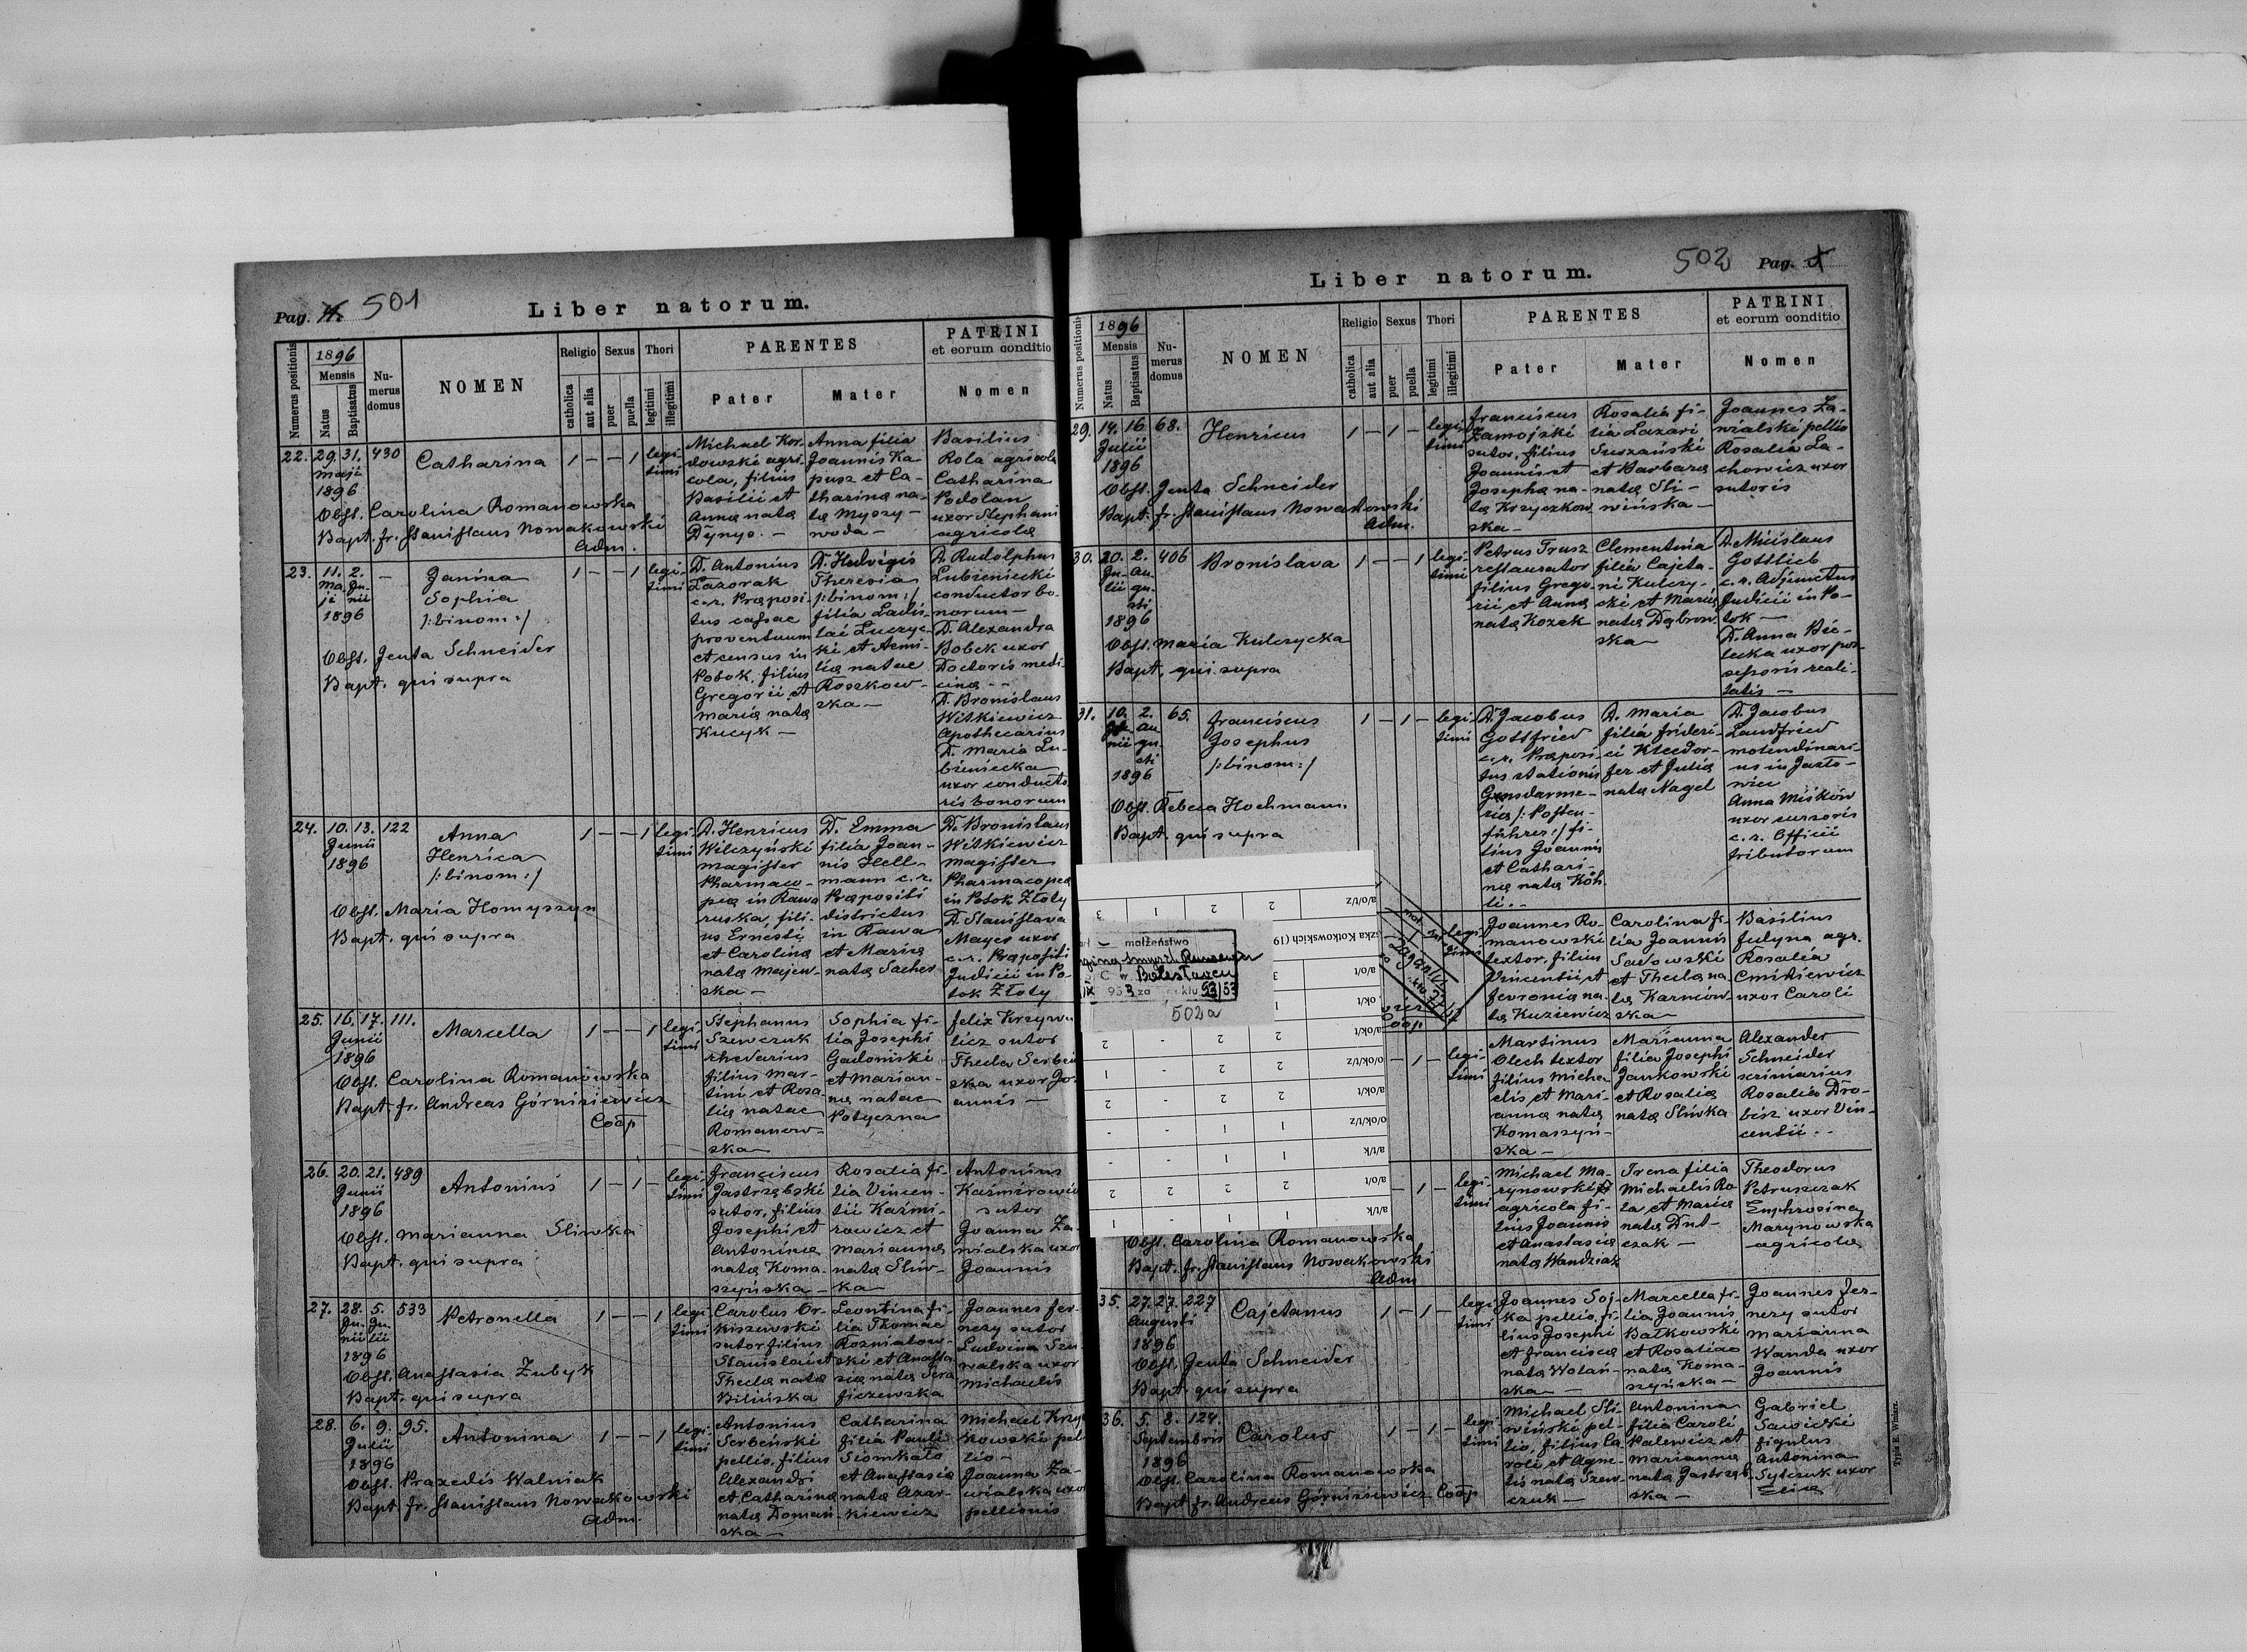 Pag. 4. 501
Liber natorum.
Numerus positionis
1896
Mensis
Natus
Baptisatus
Numerus domus
NOMEN
Religio
catholica
aut alia
Sexus
puer
puella
Thori
legitimi
illegitimi
PARENTES
Pater
Mater
PATRINI
et eorum conditio
Nomen
22. 29. 31. 430 Catharina 1 — — 1 legi-
timi
Maji
1896
Obst. Carolina Romanowska
Bapt. fr. Stanislaus Nowakowski
Adm.
Michael Kor-
dowski agri-
cola, filius
Basilii et
Anna nata
Dynyo. —
Anna filia
Joannis Ka-
pusz et Ca-
tharina na-
ta Myszy-
woda —
Basilius
Rola agricola
Catharina
Podolan
uxor Stephani
agricola
23. 11. 2. — Janina 1 — — 1 legi-
timi
Ma- Ju-
ji nii
1896
Sophia
/:binom:/
Obst. Jenta Schneider
Bapt. qui supra
D. Antonius
Lazorak
c.r. Praeposi-
tus cassae
proventuum
et census in
Potok, filius
Gregorii et
Maria nata
Kucyk —
D. Hedvigis
Theresia
/:binom:/
filia Ladis-
lai Luczyc-
ki et Aemi-
lia natae
Roszkow-
ska —
D. Rudolphus
Lubieniecki
conductor bo-
norum —
D. Alexandra
Bobek uxor
Doctoris medi-
cina —
D. Bronislaus
Witkiewicz
Apothecarius
D. Maria Lu-
bieniecka
uxor conducto-
ris bonorum
24. 10. 13. 122 Anna 1 — — 1 legi-
timi
Junii
1896
Henrica
/:binom:/
Obst. Maria Homyszyn
Bapt. qui supra
D. Henricus
Wilczyński
Magister
Pharmaco-
pea in Rawa
ruska, fili-
us Ernesti
et Carolina
nata Majew-
ska —
D. Emma
filia Joan-
nis Hell-
mann c.r.
Praepositi
districtus
in Rawa
et Maria
nata Sacher
D. Bronislaus
Witkiewicz
Magister
Pharmacopea
in Potok Złoty
D. Stanislava
Mayer uxor
c.r. Praepositi
Judicii in Po-
tok Złoty
25. 16. 17. 111. Marcella 1 — — 1 legi-
timi
Junii
1896
Obst. Carolina Romanowska
Bapt. fr. Andreas Górnisiewicz
Coop
Stephanus
Szewczuk
rhedarius
filius Mar-
tini et Rosa-
lia natae
Romanow-
ska
Sophia fi-
lia Josephi
Gadomski
et Marian-
na natae
Potyczna
Felix Krzyw-
licz sutor
Thecla Serbeń-
ska uxor Jo-
annis —
26. 20. 21. 489 Antonius 1 — 1 — legi-
timi
Junii
1896
Obst. Marianna Sliwka
Bapt. qui supra
Franciscus
Jastrzębski
sutor, filius
Josephi et
Antonina
nata Koma-
szyńska —
Rosalia fi-
lia Vincen-
tii Kaźmi-
rowicz et
Marianna
nata Sliw-
ka —
Antonius
Kaźmirowicz
sutor
Joanna Za-
wialska uxor
Joannis
27. 28. 5. 533 Petronella 1 — — 1 legi-
timi
Ju- Ju-
nii lii
1896
Obst. Anastasia Zubyk
Bapt. qui supra
Carolus Or-
kiszewski
sutor filius
Stanislai et
Thecla nata
Bilińska
Leontina fi-
lia Thomae
Rozniatow-
ski et Anasta-
sia nata Sera-
ficzewska
Joannes Fer-
nezy sutor
Ludvina Szu-
walska uxor
Michaelis
28. 6. 9. 95. Antonina 1 — — 1 legi-
timi
Julii
1896
Obst. Praxedis Walniak
Bapt. fr. Stanislaus Nowakowski
Adm.
Antonius
Serbeński
pellio, filius
Alexandri
et Catharina
nata Domań-
ska —
Catharina
filia Pauli
Siomkało
et Anastasia
nata Azar-
kiewicz
Michael Krzy-
kowski pel-
lio —
Joanna Za-
wialska uxor
pellionis
502 Pag. 5
Liber natorum.
Numerus positionis
1896
Mensis
Natus
Baptisatus
Numerus domus
NOMEN
Religio
catholica
aut alia
Sexus
puer
puella
Thori
legitimi
illegitimi
PARENTES
Pater
Mater
PATRINI
et eorum conditio
Nomen
29. 14. 16. 68. Henricus 1 — 1 — legi-
timi
Julii
1896
Obst. Jenta Schneider
Bapt. fr. Stanislaus Nowakowski
Adm.
Franciscus
Zamojski
sutor, filius
Joannis et
Josepha na-
ta Krzyczkow-
ska —
Rosalia fi-
lia Lazari
Suszański
et Barbara
nata Sli-
wińska —
Joannes Za-
wialski pellio
Rosalia La-
chowicz uxor
sutoris
30. 20. 2. 406 Bronislava 1 — — 1 legi-
timi
Ju- Au-
lii gu-
sti
1896
Obst. Maria Kulczycka
Bapt. qui supra
Petrus Trusz
restaurator
filius Grego-
rii et Anna
nata Kozek
Clementina
filia Cajeta-
ni Kulczy-
cki et Maria
nata Dąbrow-
ska —
D. Mieislaus
Gottlieb
c.r. Adjunctus
Judicii in Po-
tok —
D. Anna Bie-
lecka uxor pos-
sessoris reali-
tatis —
31. 10. 2. 65. Franciscus 1 — 1 — legi-
timi
Ju- Au-
nii gu-
sti
1896
Josephus
/:binom:/
Obst. Rebeca Hochmann.
Bapt. qui supra
D. Jacobus
Gottfried
c.r. Praeposi-
tus stationis
Gensdarme-
ria /:Posten-
führer:/ fi-
lius Joannis
et Cathari-
na nata Köh-
li. —
D. Maria
filia Frideri-
ci Kleedor-
fer et Julia
nata Nagel
D. Jacobus
Landfried
motendinari-
us in Jazło-
wiec
Anna Miśków
uxor cursoris
c.r. Officii
tributorum
legi-
timi
Joannes Ro-
manowski
textor, filius
Vincentii et
Fevronia na-
ta Kuziewicz
Carolina fi-
lia Joannis
Sadowski
et Thecla na-
ta Karniow-
ska —
Basilius
Julyna agr.
Rosalia
Cmikiewicz
uxor Caroli
— 1 — legi-
timi
Martinus
Olech textor
filius Micha-
elis et Mari-
anna nata
Komaszyń-
ska —
Marianna
filia Josephi
Jankowski
et Rosalia
nata Sliwka
Alexander
Schneider
scriniarius
Rosalia Dro-
bisz uxor Vin-
centii —
— 1 — legi-
timi
Obst. Carolina Romanowska
Bapt. fr. Stanislaus Nowakowski
Adm
Michael Ma-
rynowski
agricola fi-
lius Joannis
et Anastasia
nata Wandziak
Irena filia
Michaelis Ro-
la et Maria
nata Dut-
czak —
Theodorus
Petruszczak
Euphrosina
Marynowska
agricola
35. 27. 27. 227 Cajetanus 1 — 1 — legi-
timi
Augusti
1896
Obst. Jenta Schneider
Bapt. qui supra
Joannes Soj-
ka pellio, fi-
lius Josephi
et Francisca
nata Wolań-
ska —
Marcella fi-
lia Joannis
Bałkowski
et Rosaliae
nata Koma-
szyńska —
Joannes Fer-
nezy sutor
Marianna
Wanda uxor
Joannis
36. 5. 8. 124. Carolus 1 — 1 — legi-
timi
Septembris
1896
Obst. Carolina Romanowska
Bapt. fr. Andreas Górnisiewicz Coop
Michael Sli-
wiński pel-
lio, filius Ca-
roli et Agne-
tis nata Szew-
czuk —
Antonina
filia Caroli
Palewicz et
Marianna
nata Jastrzęb-
ska —
Gabriel
Sawicki
figulus
Antonina
Sytczuk uxor
Elia
małżeństwo
C w Bolesławcu
53/53
502a
szka Kotkowskich (19
a/o/t/z 2 2 1 3
a/o/t 3
ok/t 1
a/ok/t 2 2 - 2
o/ok/t/z 2 2 - 1
a/ok/t 2 2 - 2
o/ok/t/z 1 1 - -
a/t/k 1 1 - -
a/o/t 2 2 2 2
a/t/k 1 1 - 1
Typis E. Winiarz.